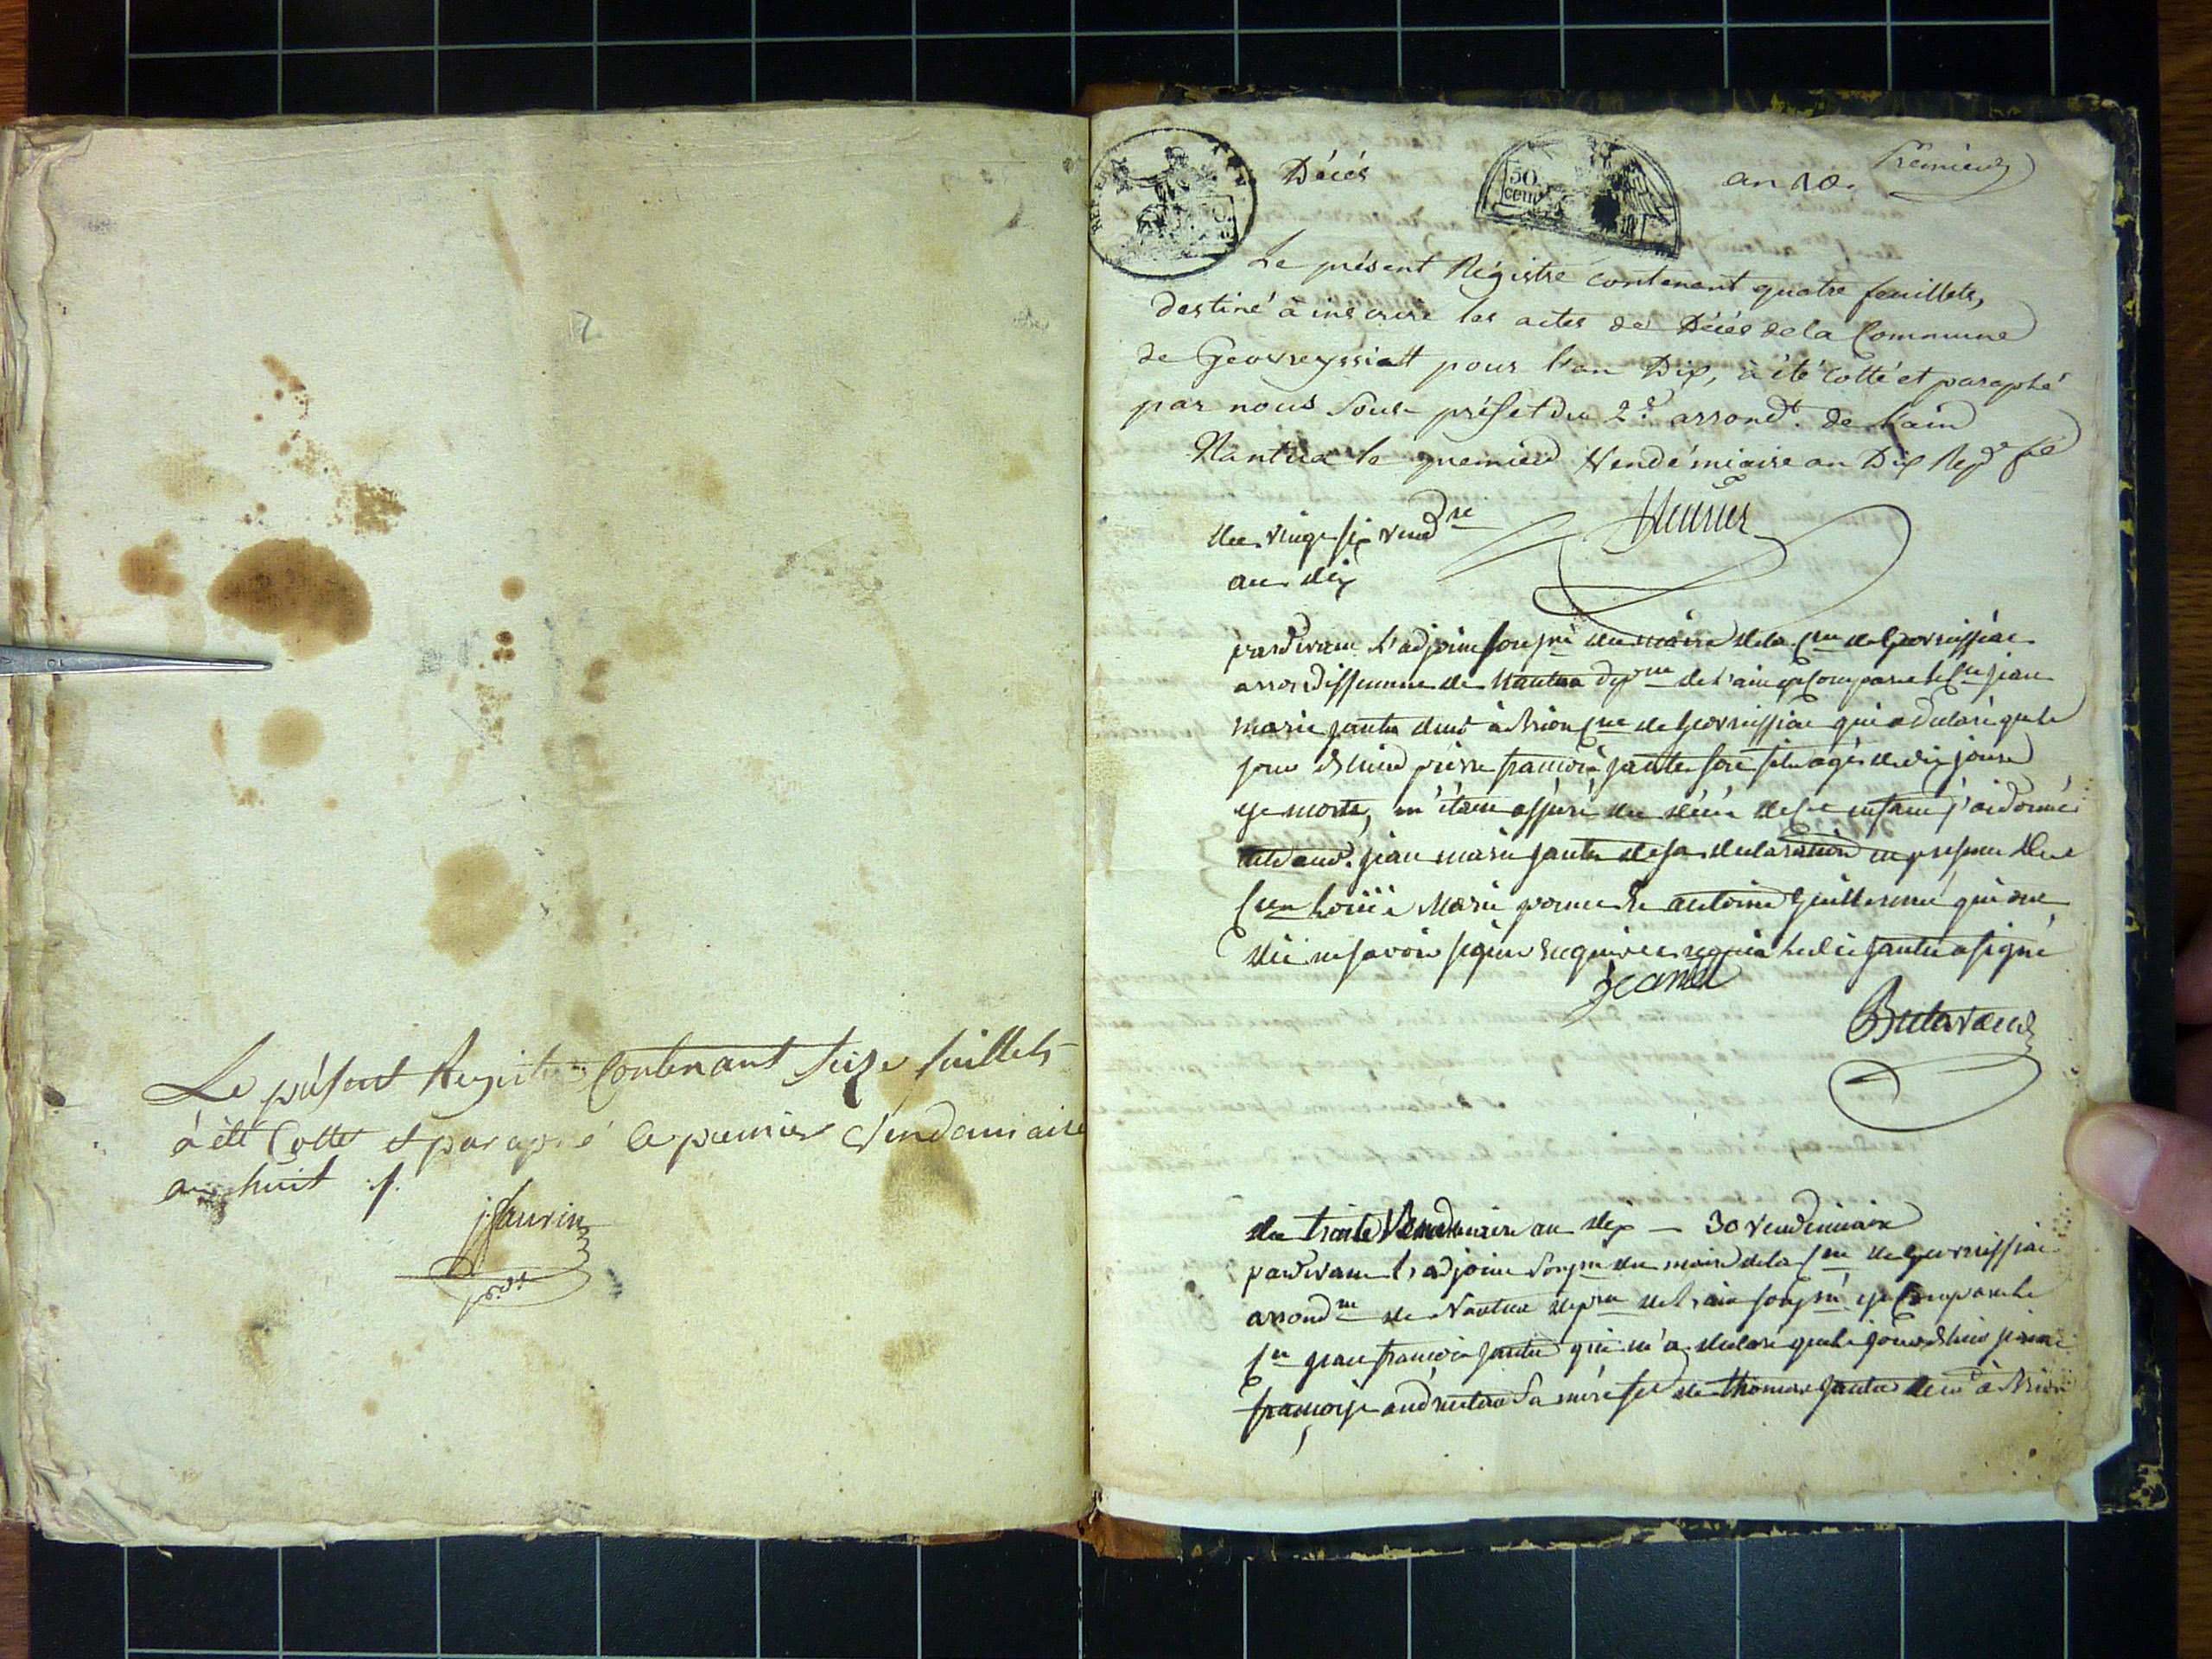 Le présent Registre Contenant seize feuillets
à été Cotté et paraphé le premier Vendemiaire
an huit ./.
jSaurin
pr.dt
Décés
50.
cent.
an 10.
Premier
Le présent Régistre contenant quatre feuillets,
destiné à inscrire les actes de Décés de la Commune
de Geovreyssiatt pour l'an Dix, à été cotté et paraphé
par nous Sous-préfet du 2.e arrond.t de l'ain
Nantua le premier Vendémiaire an Dix Rep.
du vingt six vend.re
an dix
pardevant l'adjoint sous.né du maire de la Cne de Geovreissiac
arrondissement de Nantua dpt.me de l'ain est Comparu le Cen jean
marie jantet demt à Brion Cne de Geovreissiac qui a declaré que le
jour d'hier pierre françois jantet son fils agé de dix jours
est mort, m'étant assuré du décés de ce enfant j'ai donné
acte aud. jean marie jantet de sa declaration en presence des
Cen Marie antoine Guillermet qui ont
dit ne savoir signer requis led. jantet a signé
Jeantet
Butavand
du trente Vendemiaire an dix — 30 vendemiaire
pardevant l'adjoint sousne du maire de la Cne de Geovreissiac
arrond.me de Nantua dep.me de l'ain sous.né est Comparu le
Cen jean françois jantet qui m'a declaré que le jour d'hier
françoise sa mére fe de thomas jantet demt à Brion